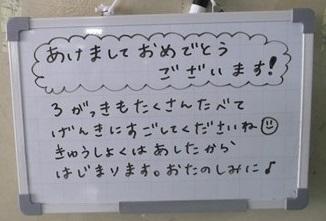 あけましておめでとう
ございます!
3がっきもたくさんたべて
げんきにすごしてくださいね☺
きゅうしょくはあしたから
はじまります。おたのしみに♪